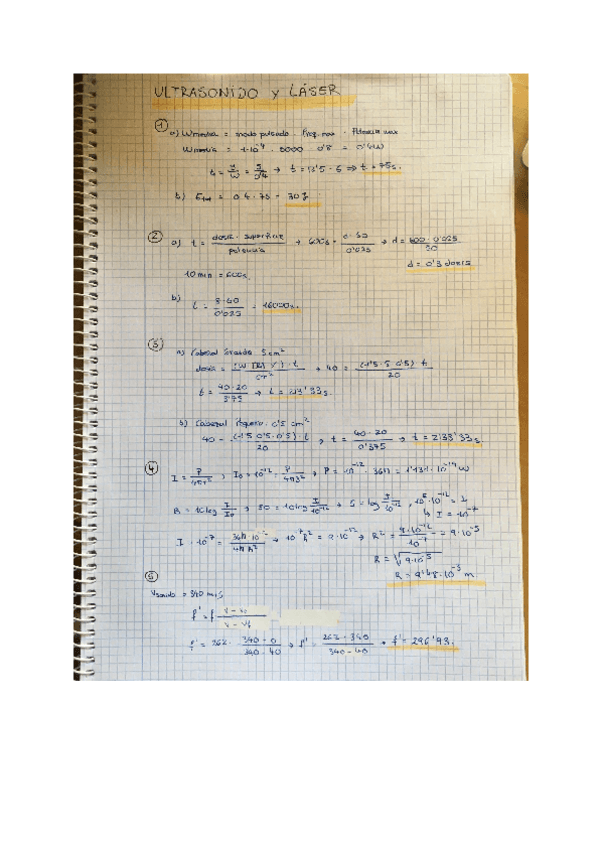 ULTRASONIDO Y LÁSER
1
a) Wmedia = modo pulsado · Freq. max · Potencia max
Wmedia = 1·10⁻⁴ · 5000 · 0'8 = 0'4W
t = = → t = 75s.
b) = 0'4 · 75 = 30 J
2
a) t = dosis · superficie / potencia → 600s = d·50 / 0'025 → d = 600 · 0'025 / 50
10 min = 600s. d = 0'3
b) t = 3·40 / 0'025 = 16000s.
3
a) Cabezal Grande 5cm²
dosis = · t / cm² → 40 = (1'5 · 5 · 0'5) · t / 20
t = 40·20 / 3'75 → t = 213'33s.
b) Cabezal Pequeño. 0'5 cm²
40 = (1'5 · 0'5 · 0'5) · t / 20 , t = 40 · 20 / 0'375 → t = 2133'33s
4
I = P / 4πr² , I₀ = 10⁻¹² = P / 4π3² , P = 10⁻¹² · 36π = 1'131 · 10⁻¹⁰ W
B = 10 log I / I₀ , 50 = 10 log I / 10⁻¹² → 5 = log I / 10⁻¹² , 10⁵ · 10⁻¹² = I
↳ I = 10⁻⁷
I = 10⁻⁷ = 36π·10⁻¹² / 4π R² → 10⁻⁷ R² = 9·10⁻¹² → R² = 9·10⁻¹² / 10⁻⁷ = 9·10⁻⁵
R = √9·10⁻⁵
R = 9'48·10⁻³ m.
5
Vsonido = 340 m/s
f' = f
f' = 262 · 340 - 0 / 340 - 40 → f' = 262 · 340 / 340 - 40 → f' = 296'93.